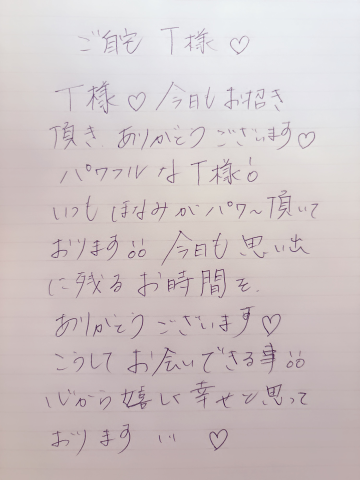 ご自宅 T様♡
T様♡今日もお招き
頂きありがとうございます♡
パワフルなT様!!
いつもほなみがパワ〜頂いて
おります!! 今日も思い出
に残るお時間を、
ありがとうございます♡
こうしてお会いできる事!!
心から嬉しく幸せと思って
おります!!! ♡